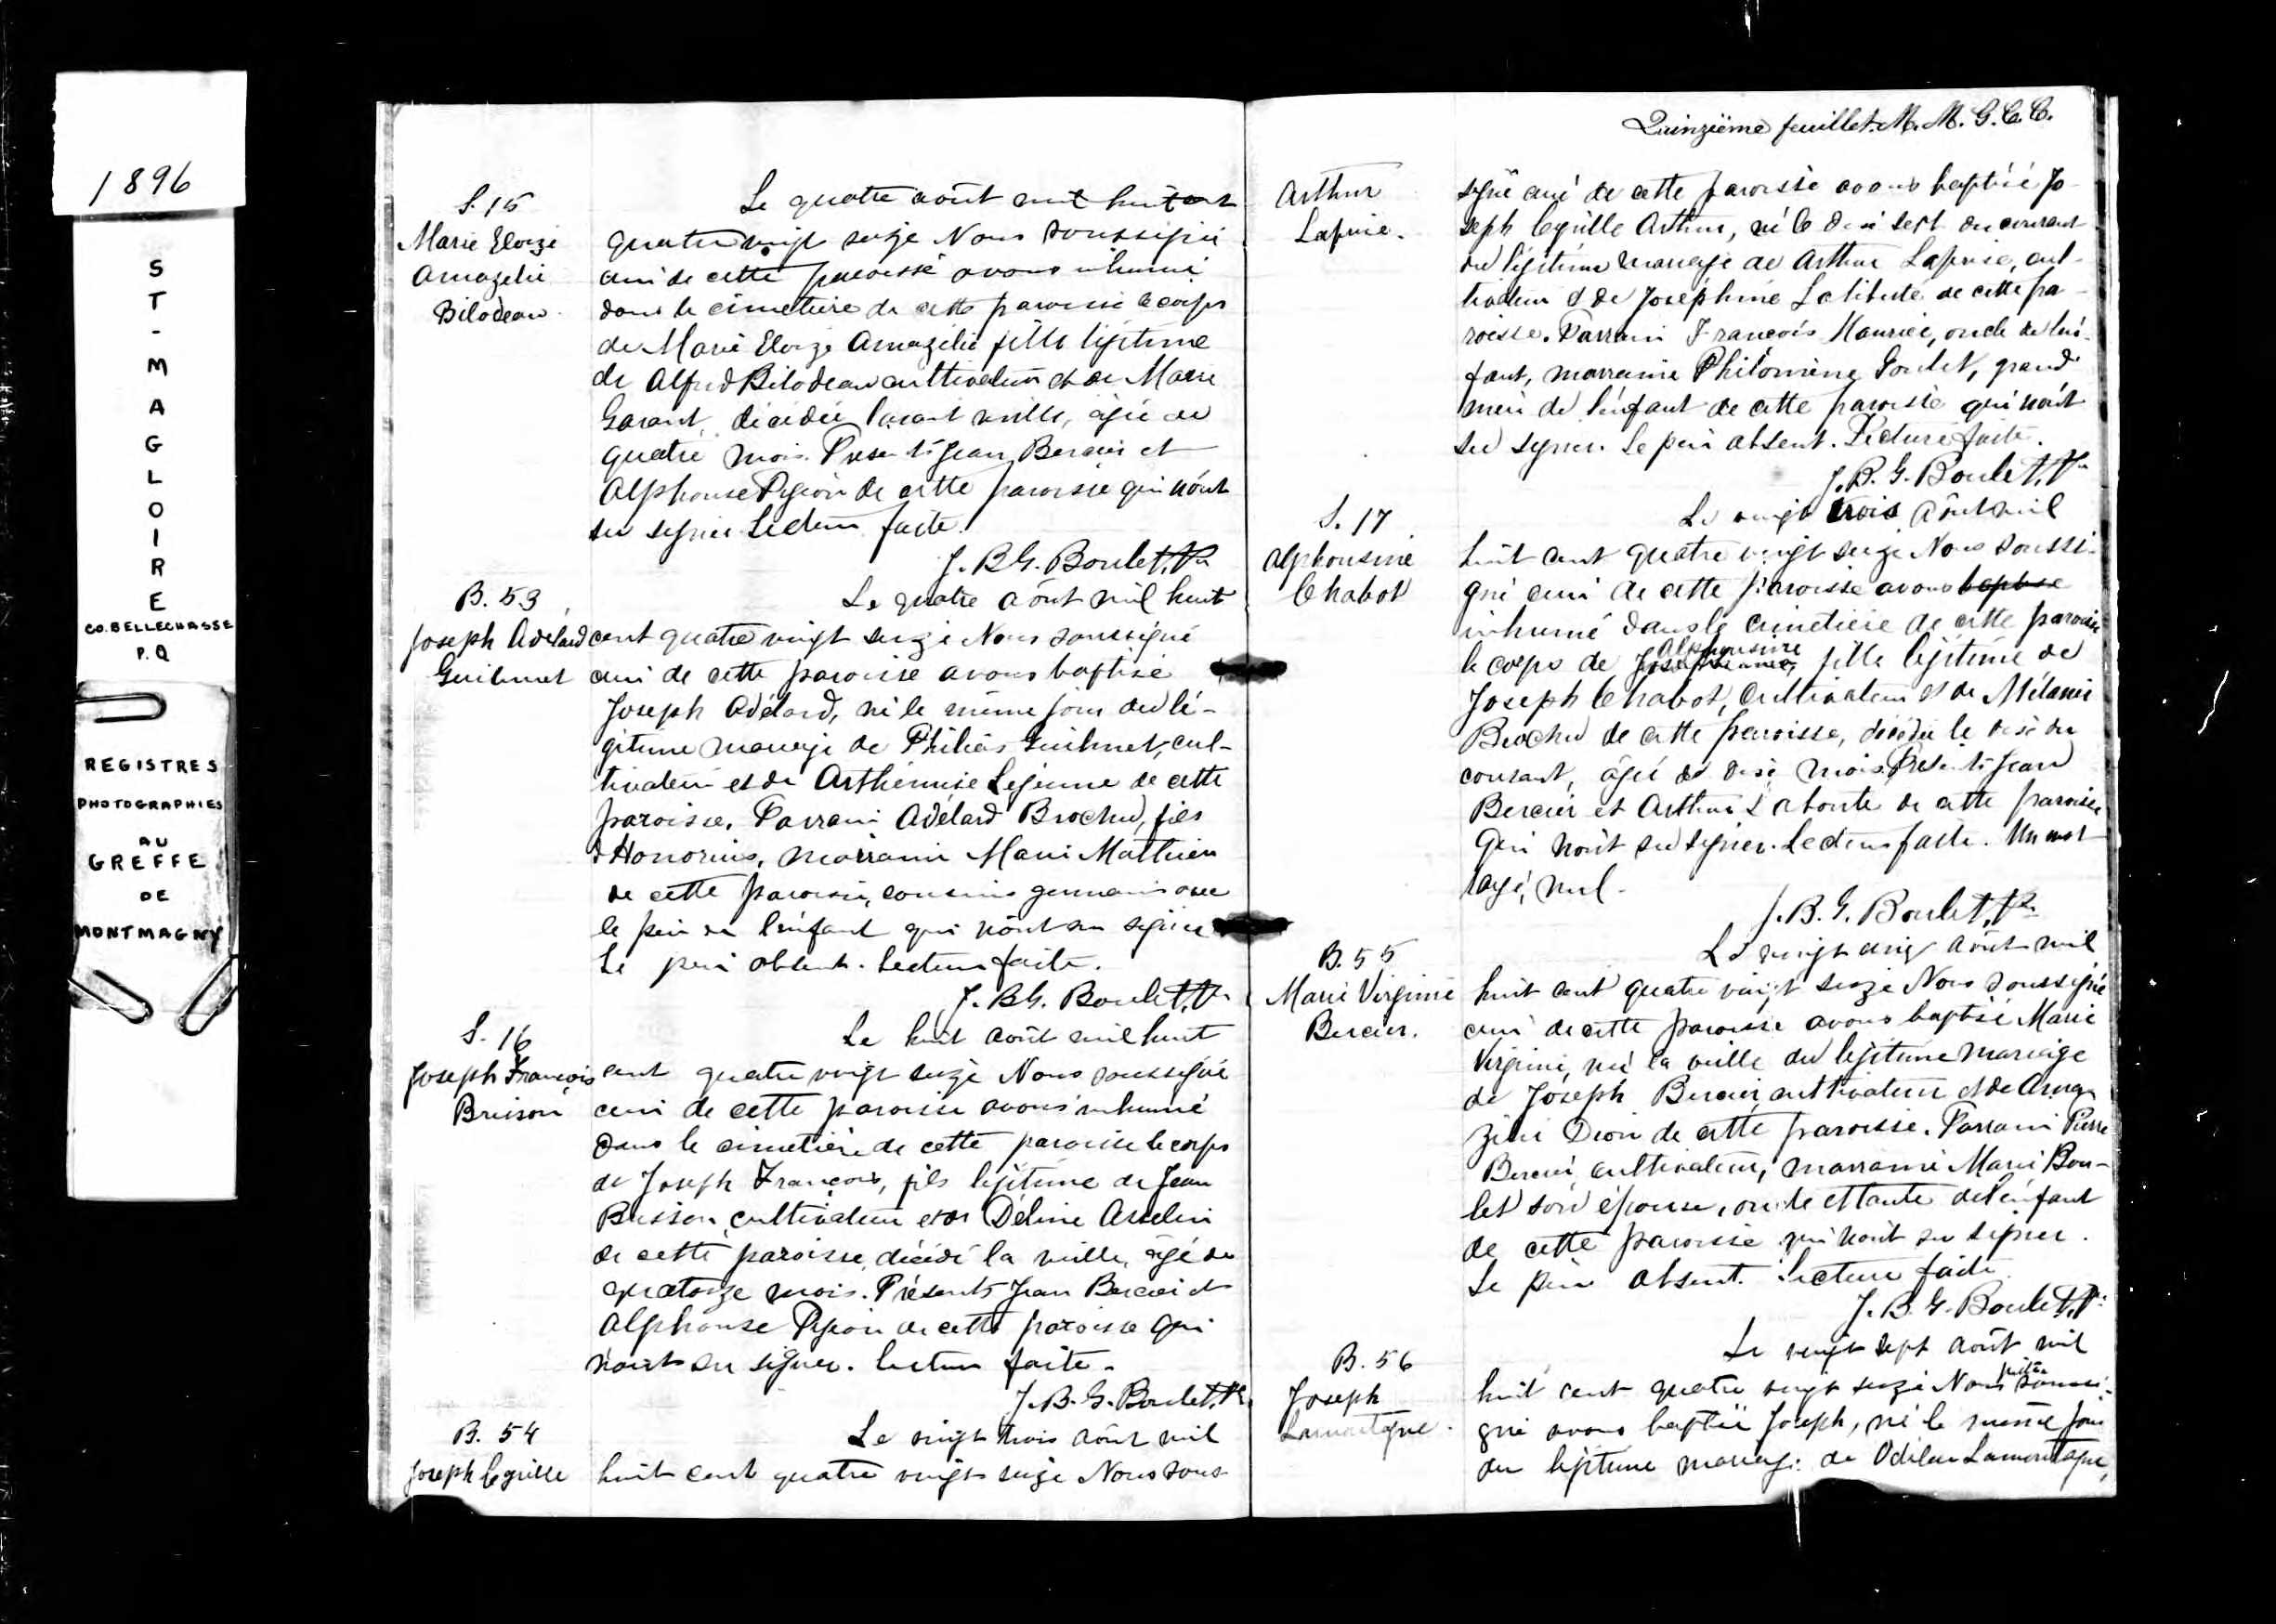 1896
ST-MAGLOIRE
CO. BELLECHASSE
P.Q
REGISTRES
PHOTOGRAPHIES
AU
GREFFE
DE
MONTMAGNY
S. 15
Marie Eloize
Amazélie
Bilodeau
Le quatre août mil huit cent
quatre vingt seize Nous soussigné
curé de cette paroisse avons inhumé
dans le cimetière de cette paroisse le corps
de Marie Eloize Amazélie fille légitime
de Alfred Bilodeau cultivateur et de Marie
Garant, décédée l'avant veille, âgée de
quatre mois. Présents Jean Bercier et
Alphonse Pigeon de cette paroisse qui n'ont
su signer Lecture faite.
J. B G. Boulet, Ptre
B. 53
Joseph Adélard
Guilmet
Le quatre août mil huit
cent quatre vingt seize Nous soussigné
curé de cette paroisse avons baptisé
Joseph Adélard, né le même jour du lé-
gitime mariage de Philéas Guilmet, cul-
tivateur et de Arthémise Lejeune de cette
paroisse. Parrain Adélard Brochu, fils
d'Honorius, marraine Marie Mathieu
de cette paroisse, cousins germains avec
le père de l'enfant qui n'ont su signer
Le père absent. Lecture faite.
J. B G. Boulet, Ptre
S. 16
Joseph François
Buisson
Le huit août mil huit
cent quatre vingt seize Nous soussigné
curé de cette paroisse avons inhumé
dans le cimetière de cette paroisse le corps
de Joseph François, fils légitime de Jean
Buisson cultivateur et de Déline Asselin
de cette paroisse, décédé la veille, âgé de
quatorze mois. Présents Jean Bercier et
Alphonse Pigeon de cette paroisse qui
n'ont su signer. Lecture faite.
J. B. G. Boulet, Ptre
B. 54
Joseph Cyrille
Le vingt trois août mil
huit cent quatre vingt seize Nous sous-
Quinzième feuillet. M. M. G. C. C.
Arthur
Laprise.
signé curé de cette paroisse avons baptisé Jo-
seph Cyrille Arthur, né le dix sept du courant
du légitime mariage de Arthur Laprise, cul-
tivateur et de Joséphine Laliberté de cette pa-
roisse. Parrain François Mauricè, oncle de l'en-
fant, marraine Philomène Goulet, grand'
mère de l'enfant de cette paroisse qui n'ont
su signer. Le père absent. Lecture faite.
J. B. G. Boulet, Ptre
S. 17
Alphonsine
Chabot
Le vingt trois août mil
huit cent quatre vingt seize Nous soussi-
gné curé de cette paroisse avons baptisé
inhumé dans le cimetière de cette paroisse
Alphonsine
le corps de fille légitime de
Joseph Chabot, cultivateur et de Mélanie
Brochu de cette paroisse, décédée le du
courant, âgée de mois. Présents Jean
Bercier et Arthur de cette paroisse
qui n'ont su signer. Lecture faite. Un mot
rayé, nul.
J. B. G. Boulet, Ptre
B. 55
Marie Virginie
Bercier.
Le vingt cinq août mil
huit cent quatre vingt seize Nous soussigné
curé de cette paroisse avons baptisé Marie
Virginie, née la veille du légitime mariage
de Joseph Bercier, cultivateur et de Ama-
zélie Dion de cette paroisse. Parrain Pierre
Bercier, cultivateur, marraine Marie Bou-
let son épouse, oncle et tante de l'enfant
de cette paroisse qui n'ont su signer.
Le père absent. Lecture faite.
J. B. G. Boulet, Ptre
B. 56
Joseph
Lamontagne
Le vingt sept août mil
huit cent quatre vingt seize Nous prêtre soussi-
gné avons baptisé Joseph, né le même jour
du légitime mariage de Odilon Lamontagne,